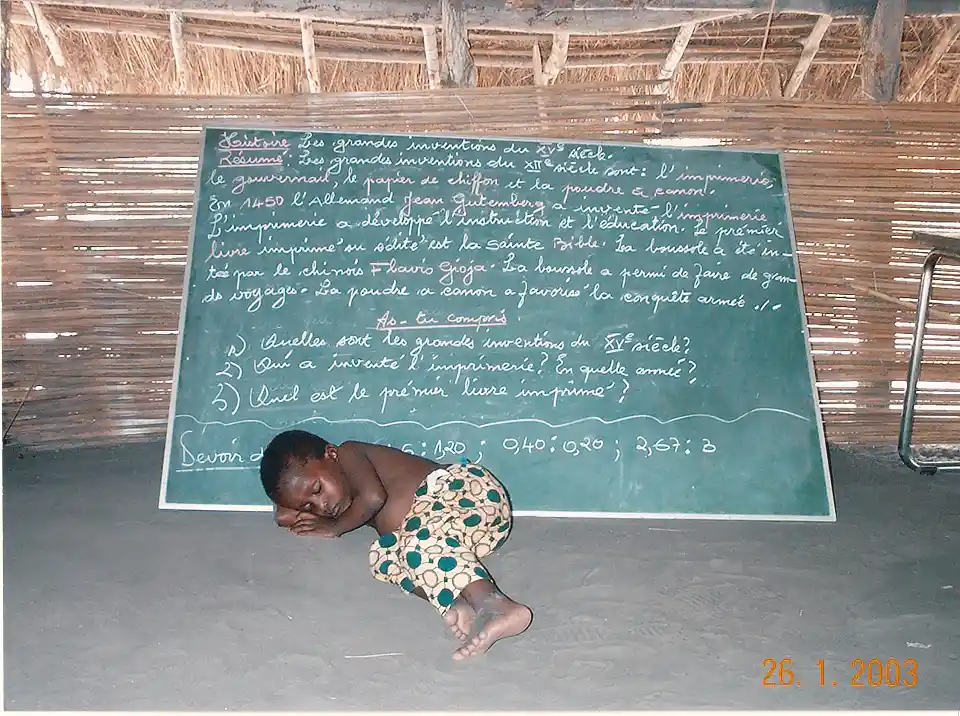 Histoire Les grandes inventions du XVe siècle.
Résumé: Les grandes inventions du XIIe siècle sont: l'imprimerie,
le gouvernail, le papier de chiffon et la poudre à canon.
En 1450 l'Allemand Jean Gutemberg a inventé l'imprimerie
L'imprimerie a développé l'instruction et l'éducation. Le prémier
livre imprimé ou s'édité est la sainte Bible. La boussole a été in-
té par le chinois Flavio Gioja. La boussole a permi de faire de gran-
ds voyages. La poudre a canon a favorisé la conquête armée ./.
As-tu compris
1) Quelles sont les grandes inventions du XVe siècle?
2) Qui a inventé l'imprimerie? En quelle année?
3) Quel est le prémier livre imprimé?
Devoir d 6:1,20; 0,40:0,20; 2,67:3
26. 1. 2003